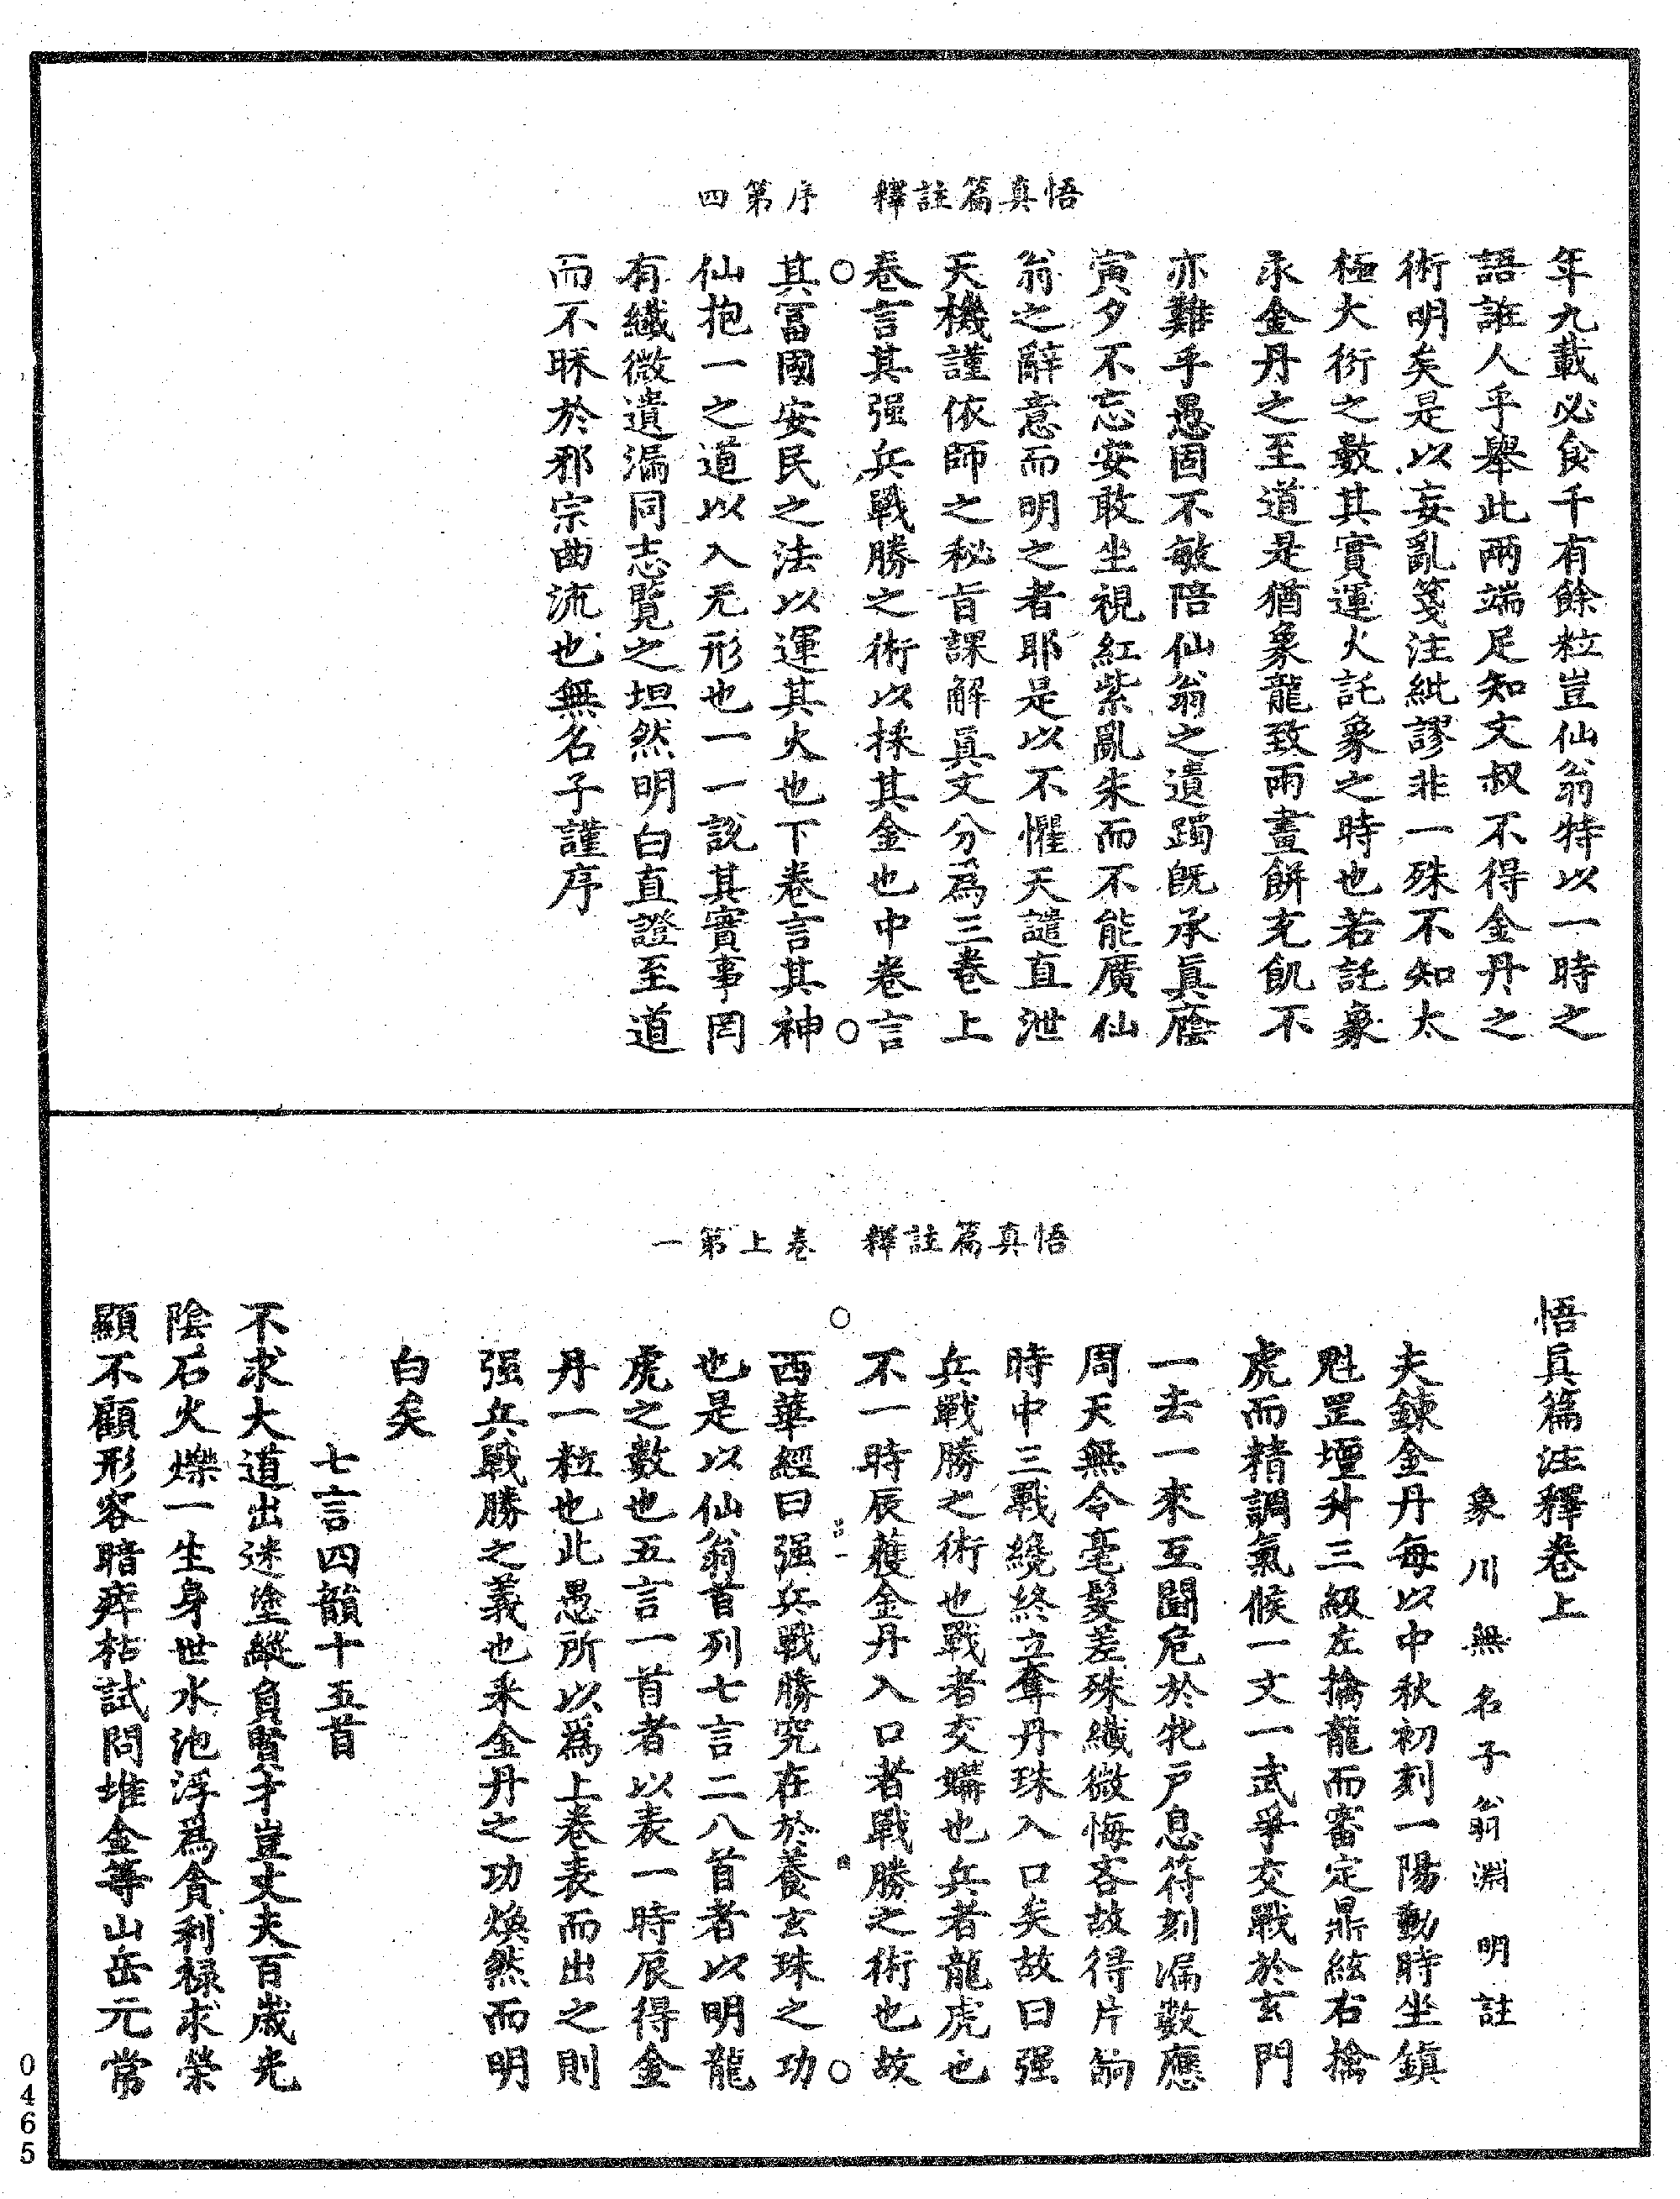 悟真篇註釋　序第四
年九載必食千有餘粒豈仙翁特以一時之
語誑人乎舉此兩端足知文叔不得金丹之
術明矣是以妄亂箋注紕謬非一殊不知太
極大衍之數其實運火託象之時也若託象
永金丹之至道是猶象龍致雨畫餅充飢不
亦難乎愚固不敏陪仙翁之遺躅既承真廕
寅夕不忘安敢坐視紅紫亂朱而不能廣仙
翁之辭意而明之者耶是以不懼天譴直泄
天機謹依師之秘旨課解真文分爲三卷上
卷言其强兵戰勝之術以採其金也中卷言
其富國安民之法以運其火也下卷言其神
仙抱一之道以入无形也一一說其實事罔
有纖微遺漏同志覽之坦然明白直證至道
而不昧於邪宗曲流也無名子謹序
悟真篇註釋　卷上第一
悟真篇注釋卷上
象川無名子翁淵明註
夫鍊金丹每以中秋初刻一陽動時坐鎮
魁罡壇升三級左擒龍而審定鼎絃右擒
虎而精調氣候一文一武爭交戰於玄門
一去一來互鬭危於牝戶息符刻漏數應
周天無令毫髮差殊纖微悔吝故得片餉
時中三戰纔終立奪丹珠入口矣故曰强
兵戰勝之術也戰者交媾也兵者龍虎也
不一時辰蒦金丹入口者戰勝之術也故
西華經曰强兵戰勝究在於養玄珠之功
也是以仙翁首列七言二八首者以明龍
虎之數也五言一首者以表一時辰得金
丹一粒也此愚所以爲上卷表而出之則
强兵戰勝之義也釆金丹之功煥然而明
白矣
七言四韻十五首
不求大道出迷塗縱負賢才豈丈夫百歲光
陰石火爍一生身世水池浮爲貪利祿求榮
顯不顧形容暗瘁枯試問堆金等山岳元常
0465